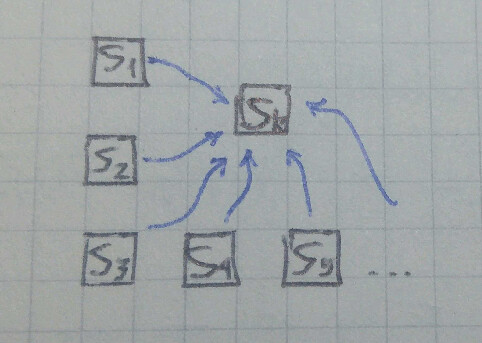 S1
Sk
S2
S3 S4 S5 ...